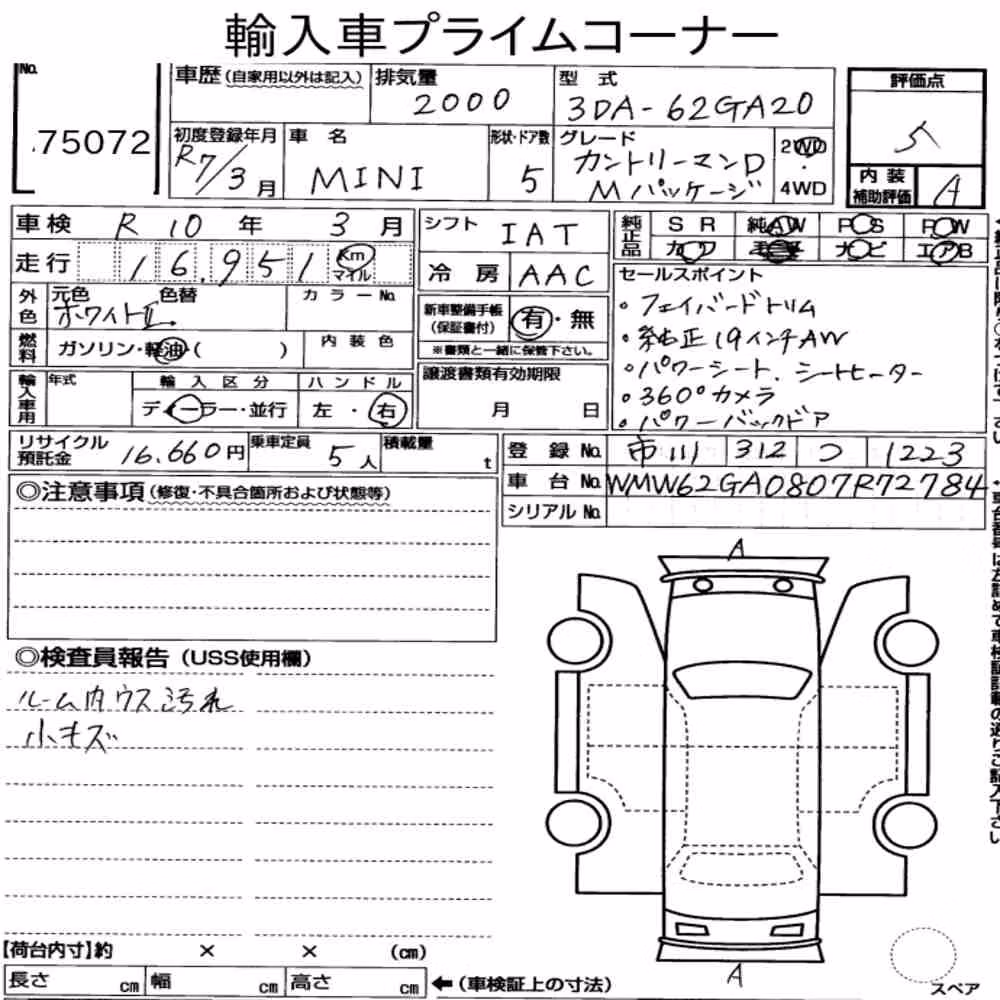 輸入車プライムコーナー
No. 75072
車歴 (自家用以外は記入)
排気量 2000
型式 3DA-62GA20
評価点 5
初度登録年月 R7/3月
車名 MINI
形状・ドア数 5
グレード カントリーマンD Mパッケージ
2WD・4WD
内装補助評価 A
車検 R 10年 3月
シフト IAT
純正品 SR 純AW PS PW
カワ ナビ エアB
走行 16,951 Km マイル
冷房 AAC
セールスポイント
・フェイバードトリム
・純正19インチAW
・パワーシート、シートヒーター
・360°カメラ
・パワーバックドア
外色 元色 ホワイトII 色替 カラーNo.
新車整備手帳(保証書付) 有・無
※書類と一緒に保管下さい。
燃料 ガソリン・軽油・( ) 内装色
譲渡書類有効期限 月 日
輸入車用 年式 輸入区分 ディーラー・並行 ハンドル 左・右
リサイクル預託金 16,660円 乗車定員 5人 積載量 t
登録No. 市川 312 つ 1223
車台No. WMW62GA0807R72784
シリアルNo.
◎注意事項 (修復・不具合箇所および状態等)
◎検査員報告 (USS使用欄)
ルーム内ウス汚れ
小キズ
A
A
【荷台内寸】約 × × (cm)
長さ cm 幅 cm 高さ cm ←(車検証上の寸法)
スペア